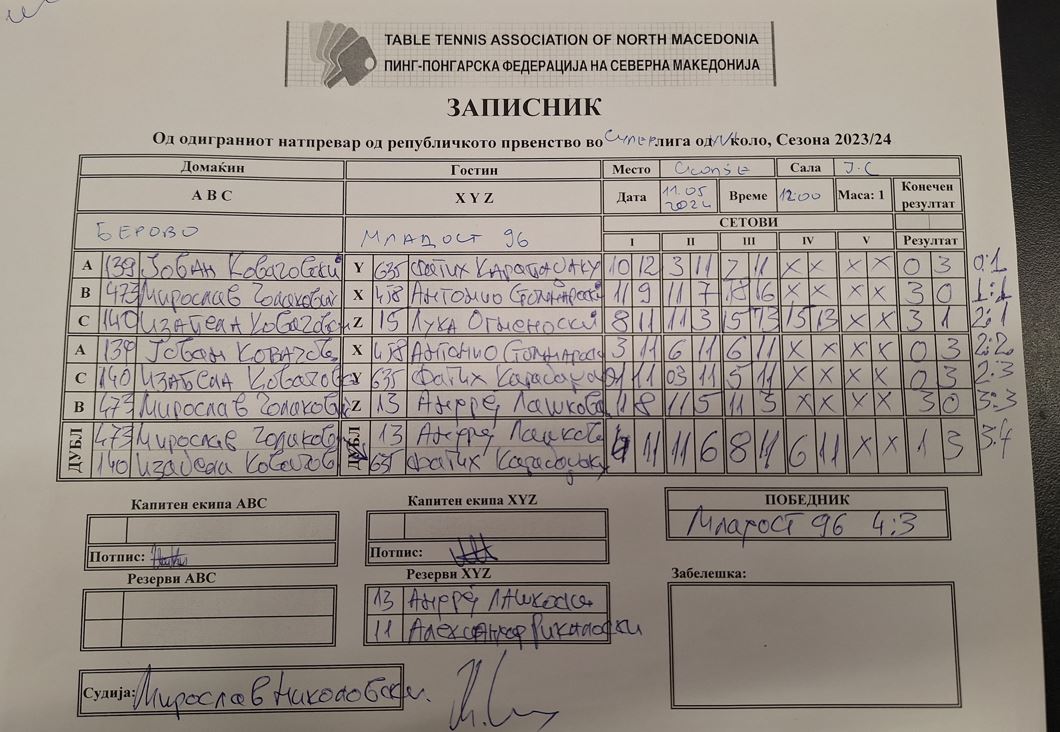 TABLE TENNIS ASSOCIATION OF NORTH MACEDONIA
ПИНГ-ПОНГАРСКА ФЕДЕРАЦИЈА НА СЕВЕРНА МАКЕДОНИЈА
ЗАПИСНИК
Од одиграниот натпревар од републичкото првенство во Супер лига од коло, Сезона 2023/24
Домаќин Гостин Место Скопје Сала
A B C X Y Z Дата 11.05 2024 Време 12:00 Маса: 1 Конечен резултат
БЕРОВО МЛАДОСТ 96 СЕТОВИ
I II III IV V Резултат
A 139 Јован Ковачовски Y 635 Фатих 10 12 3 11 7 11 X X X X 0 3 0:1
B 473 Мирослав X 458 Антонио 11 9 11 7 18 16 X X X X 3 0 1:1
C 140 Z 15 Лука Огненоски 8 11 11 3 15 13 15 13 X X 3 1 2:1
A 139 Јован X 458 Антонио 3 11 6 11 6 11 X X X X 0 3 2:2
C 140 Y 635 Фатих 11 11 5 11 X X X X 0 3 2:3
B 473 Мирослав Z 13 Андреј Лашкова 11 8 11 5 11 3 X X X X 3 0 3:3
ДУБЛ 473 Мирослав ДУБЛ 13 Андреј 11 11 6 8 11 6 11 X X 1 3 3:4
140 635 Фатих
Капитен екипа ABC Капитен екипа XYZ ПОБЕДНИК
Младост 96 4:3
Потпис: Потпис:
Резерви ABC Резерви XYZ Забелешка:
13 Андреј
11 Александар
Судија: Мирослав Николовски.